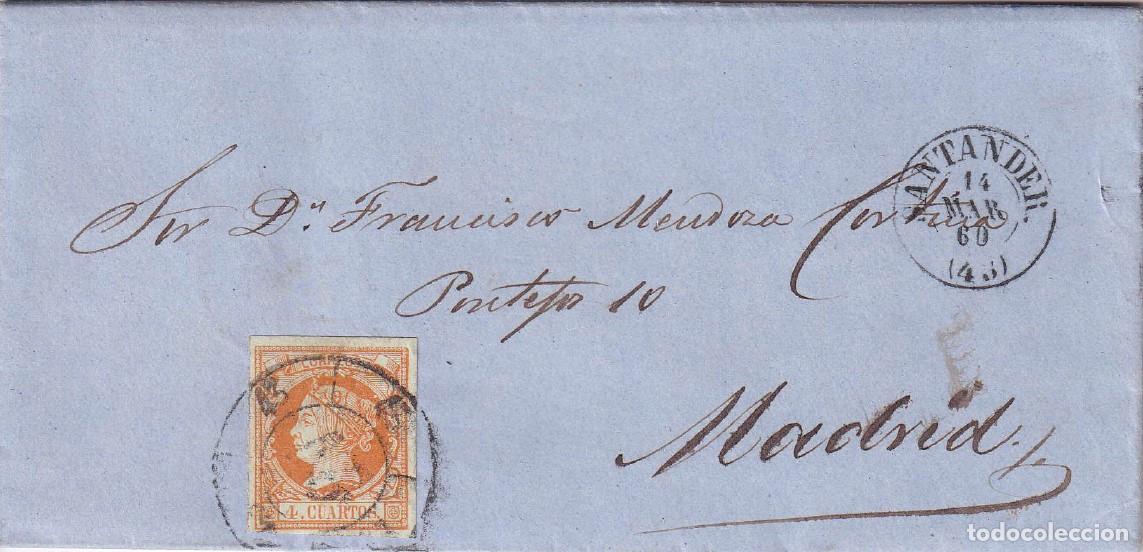 SANTANDER
14
MAR
60
(43)
Sor Dn. Francisco Mendoza Cortina
Pontejos 10
CORREOS
4 CUARTOS.
Madrid
todocoleccion